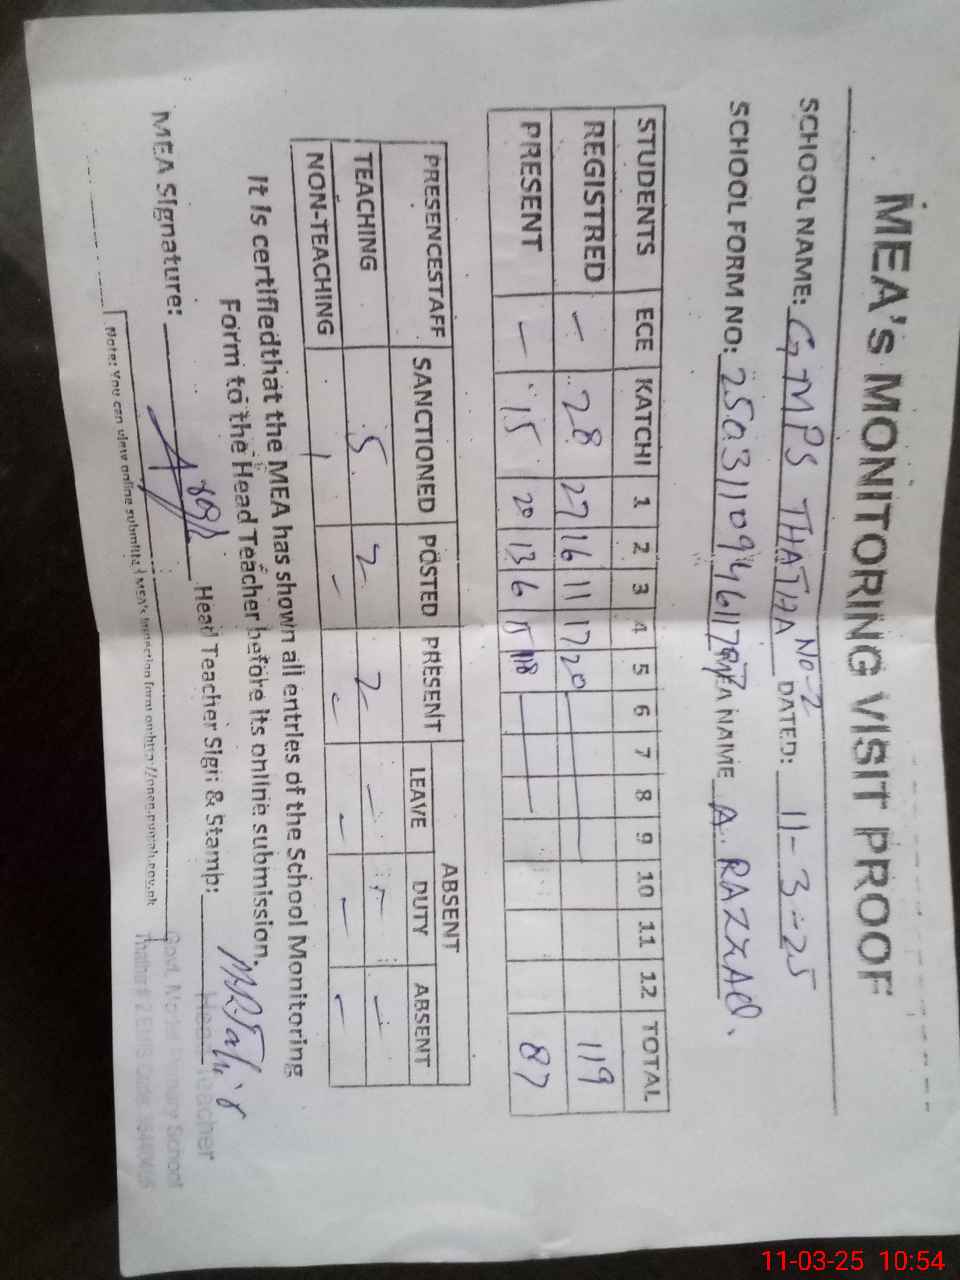 MEA's MONITORING VISIT PROOF
SCHOOL NAME: GMPS THATHA No-2 DATED: 11-3-25
SCHOOL FORM NO: MEA NAME A. RAZZAQ.
STUDENTS ECE KATCHI 1 2 3 4 5 6 7 8 9 10 11 12 TOTAL
REGISTRED — 28 27 16 11 17 20 119
PRESENT — 15 20 13 6 15 18 87
PRESENCESTAFF SANCTIONED POSTED PRESENT ABSENT
LEAVE DUTY ABSENT
TEACHING 5 2 2 — — —
NON-TEACHING 1 — — — — —
It is certifiedthat the MEA has shown all entries of the School Monitoring
Form to the Head Teacher before its online submission.
MEA Signature: Head Teacher Sign & Stamp:
Head Teacher
Govt. Model Primary School
Thatha # 2 EMIS Code
Note: You can view online submitted MEA's Inspection form on
11-03-25 10:54